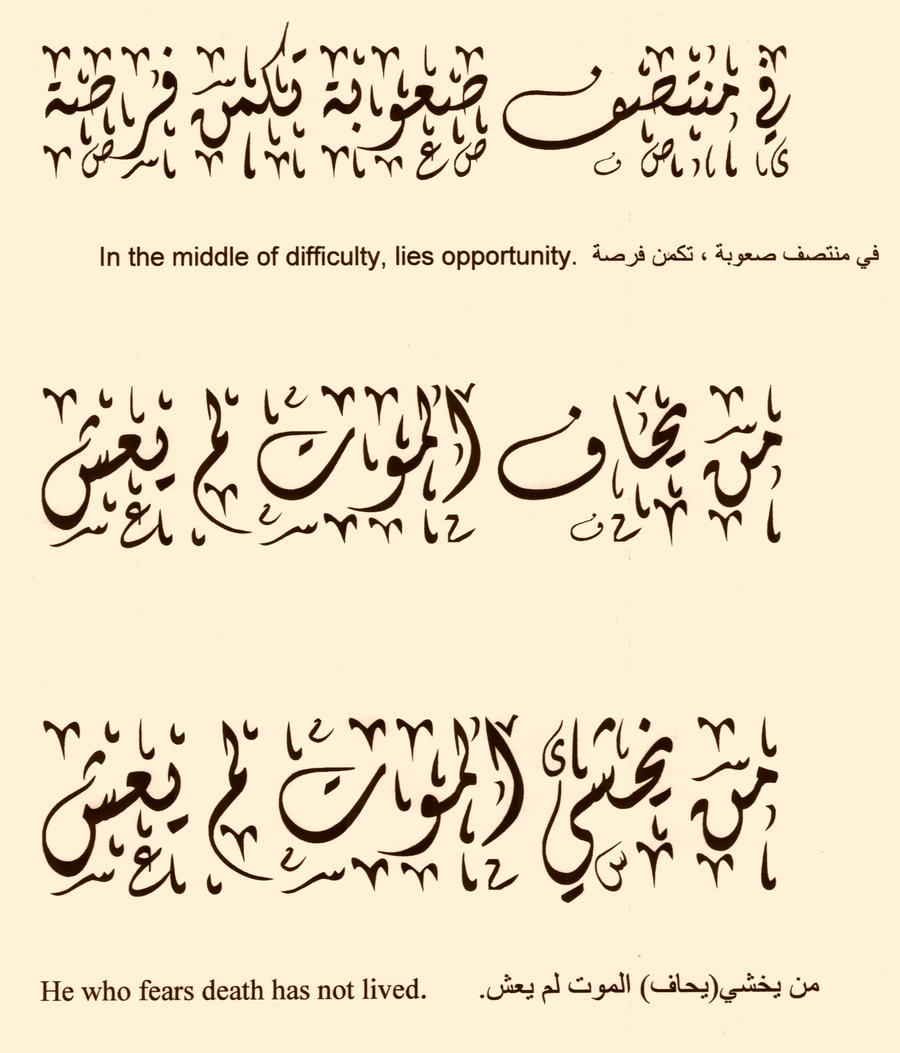 في منتصف صعوبة تكمن فرصة
In the middle of difficulty, lies opportunity. في منتصف صعوبة ، تكمن فرصة
من يحاف الموت لم يعش
من يخشي الموت لم يعش
He who fears death has not lived. من يخشي(يحاف) الموت لم يعش.